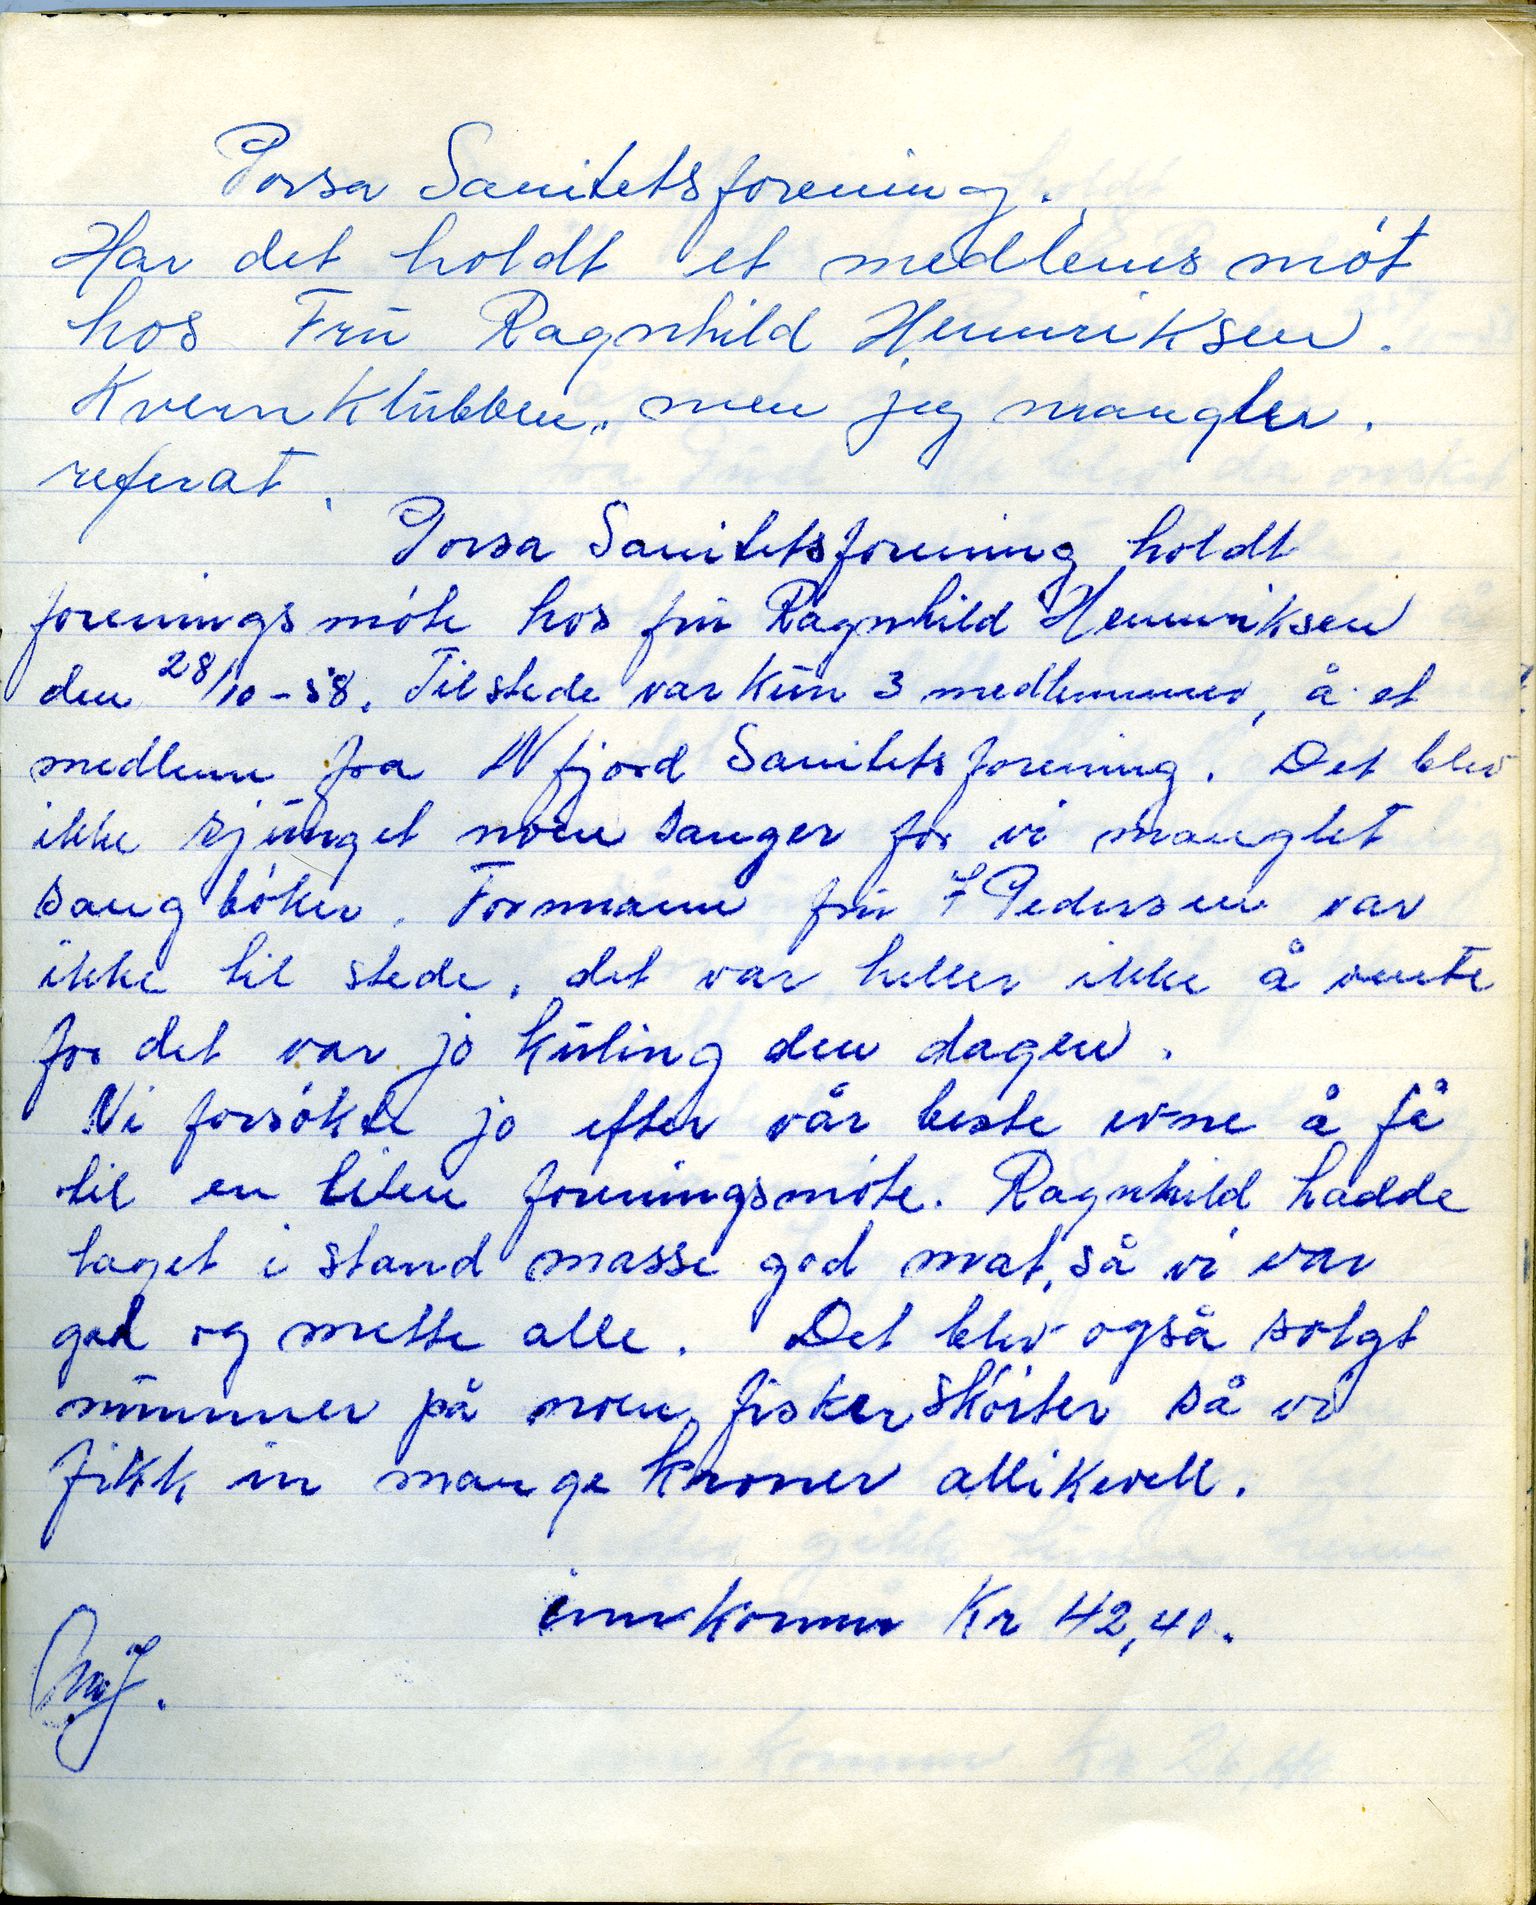 Porsa Sanitetsforening.
Har det holdt et medlems møt
hos Frü Ragnhild Hennriksen.
Kvernklübben, men jeg mangler.
referat.
Porsa Sanitetsforening holdt
foreningsmøte hos frü Ragnhild Hennriksen
den 28/10-58. Tilstede var kün 3 medlemmer, å et
medlem fra Nfjord Sanitetsforening. Det blev
ikke sjünget noen sanger for vi manglet
sang bøker. Formann frü Pedersen var
ikke til stede. det var heller ikke å vente
for det var jo küling den dagen.
Vi forsøkte jo efter vår beste evne å få
til en liten foreningsmøte. Ragnhild hadde
laget i stand masse god mat, så vi var
god og mette alle. Det blev også solgt
nümmer på noen fisker skøiter så vi
fikk in mange kroner allikevell.
innkommer Kr 42,40.